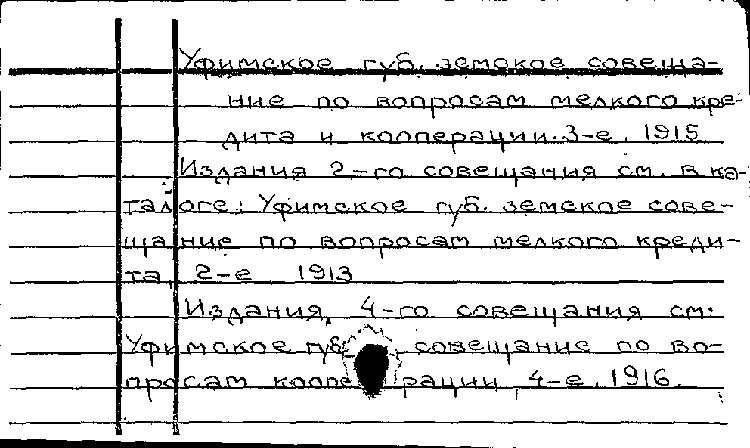 Уфимское губ. земское совеща-
ние по вопросам мелкого кре-
дита и кооперации. 3-е. 1915
Издания 2-го совещания см. в ка-
талоге: Уфимское губ. земское сове-
щание по вопросам мелкого креди-
та, 2-е 1913
Издания, 4-го совещания см.
Уфимское губ. совещание по во-
просам кооперации, 4-е. 1916.